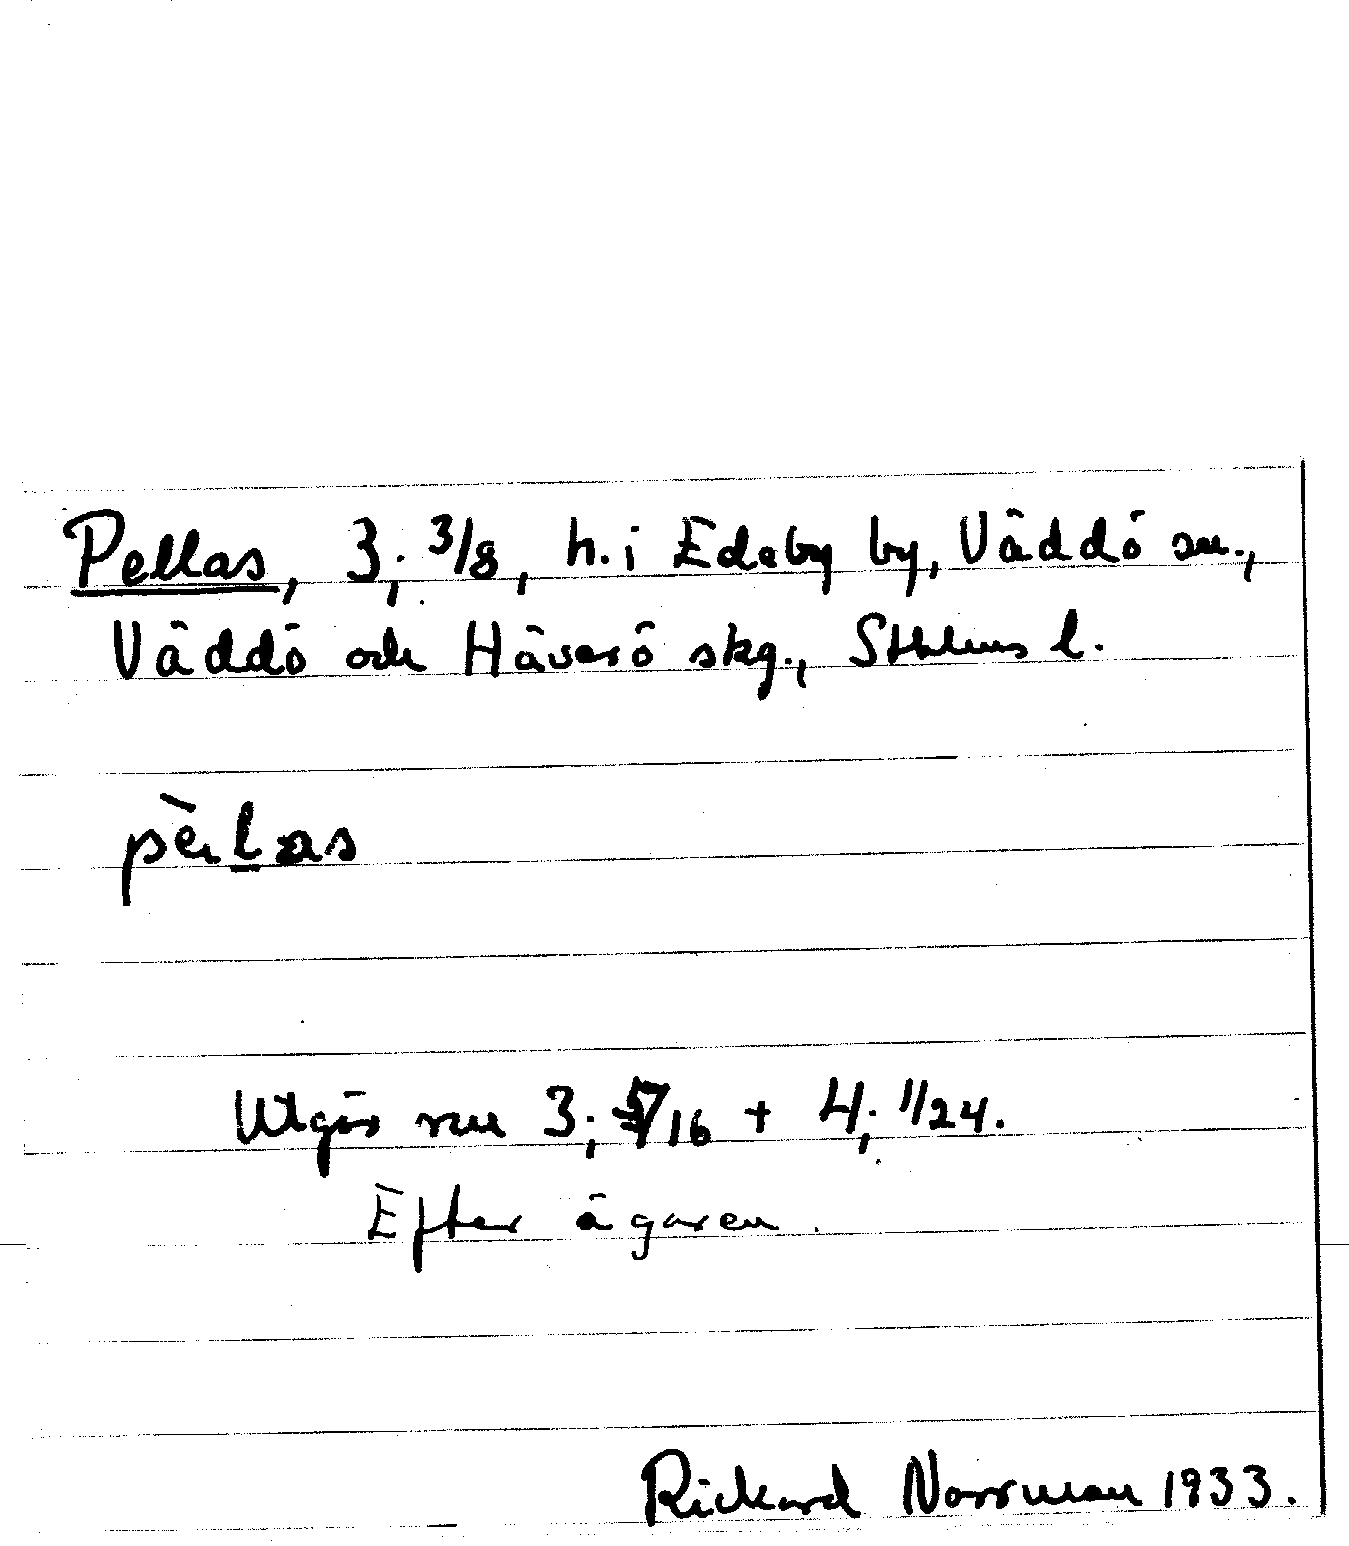 Pellas, 3; 3/8, h. i Edeby by, Väddö sn.,
Väddö och Häverö skg., Sthlms l.
Utgör nu 3; /16 + 4; 11/24.
Efter ägaren.
Rickard Norrman 1933.